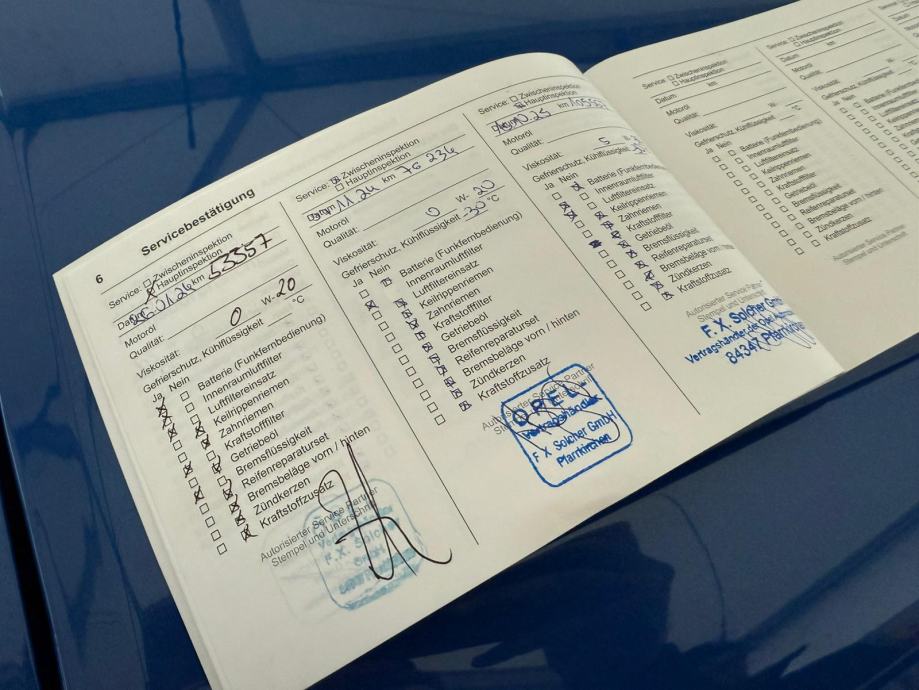 6
Servicebestätigung
Service: Zwischeninspektion
Hauptinspektion
Datum 26.01.24 km 53357
Motoröl
Qualität: 0 W-20
Viskosität:
Gefrierschutz, Kühlflüssigkeit °C
Ja Nein
Batterie (Funkfernbedienung)
Innenraumluftfilter
Luftfiltereinsatz
Keilrippenriemen
Zahnriemen
Kraftstofffilter
Getriebeöl
Bremsflüssigkeit
Reifenreparaturset
Bremsbeläge vorn / hinten
Zündkerzen
Kraftstoffzusatz
Autorisierter Service Partner
Stempel und Unterschrift
Vertragshändler
F.X. Solcher
GmbH
Service: Zwischeninspektion
Hauptinspektion
Datum 11.24 km 76 234
Motoröl
Qualität: 0 W-20
Viskosität:
Gefrierschutz, Kühlflüssigkeit -30 °C
Ja Nein
Batterie (Funkfernbedienung)
Innenraumluftfilter
Luftfiltereinsatz
Keilrippenriemen
Zahnriemen
Kraftstofffilter
Getriebeöl
Bremsflüssigkeit
Reifenreparaturset
Bremsbeläge vorn / hinten
Zündkerzen
Kraftstoffzusatz
Autorisierter Service Partner
OPEL
Vertragshändler
F X Solcher GmbH
Pfarrkirchen
Service: Zwischeninspektion
Hauptinspektion
10.25 km
Motoröl
Qualität: 5 W-
Viskosität:
Gefrierschutz, Kühlflüssigkeit
Ja Nein
Batterie (Funkfernbe
Innenraumluftfilter
Luftfiltereinsatz
Keilrippenriemen
Zahnriemen
Kraftstofffilter
Getriebeöl
Bremsflüssigkeit
Reifenreparaturset
Bremsbeläge vorn
Zündkerzen
Kraftstoffzusatz
Autorisierter Service Partner
Stempel und Unters
F. X. Solcher GmbH
Vertragshändler der Opel
84347 Pfarrkirchen
Service: Zwischeninspektion
Hauptinspektion
Datum km
Motoröl
Qualität: W-
Viskosität:
Gefrierschutz, Kühlflüssigkeit °C
Ja Nein
Batterie (Funkfernbedienung)
Innenraumluftfilter
Luftfiltereinsatz
Keilrippenriemen
Zahnriemen
Kraftstofffilter
Getriebeöl
Bremsflüssigkeit
Reifenreparaturset
Bremsbeläge vorn / hinten
Zündkerzen
Kraftstoffzusatz
Autorisierter Service Partner
Stempel und Unterschrift
Service: Zwischeninspektion
Hauptinspektion
Datum km
Motoröl
Qualität:
Viskosität:
Gefrierschutz, Kühlflüssigkeit
Ja Nein